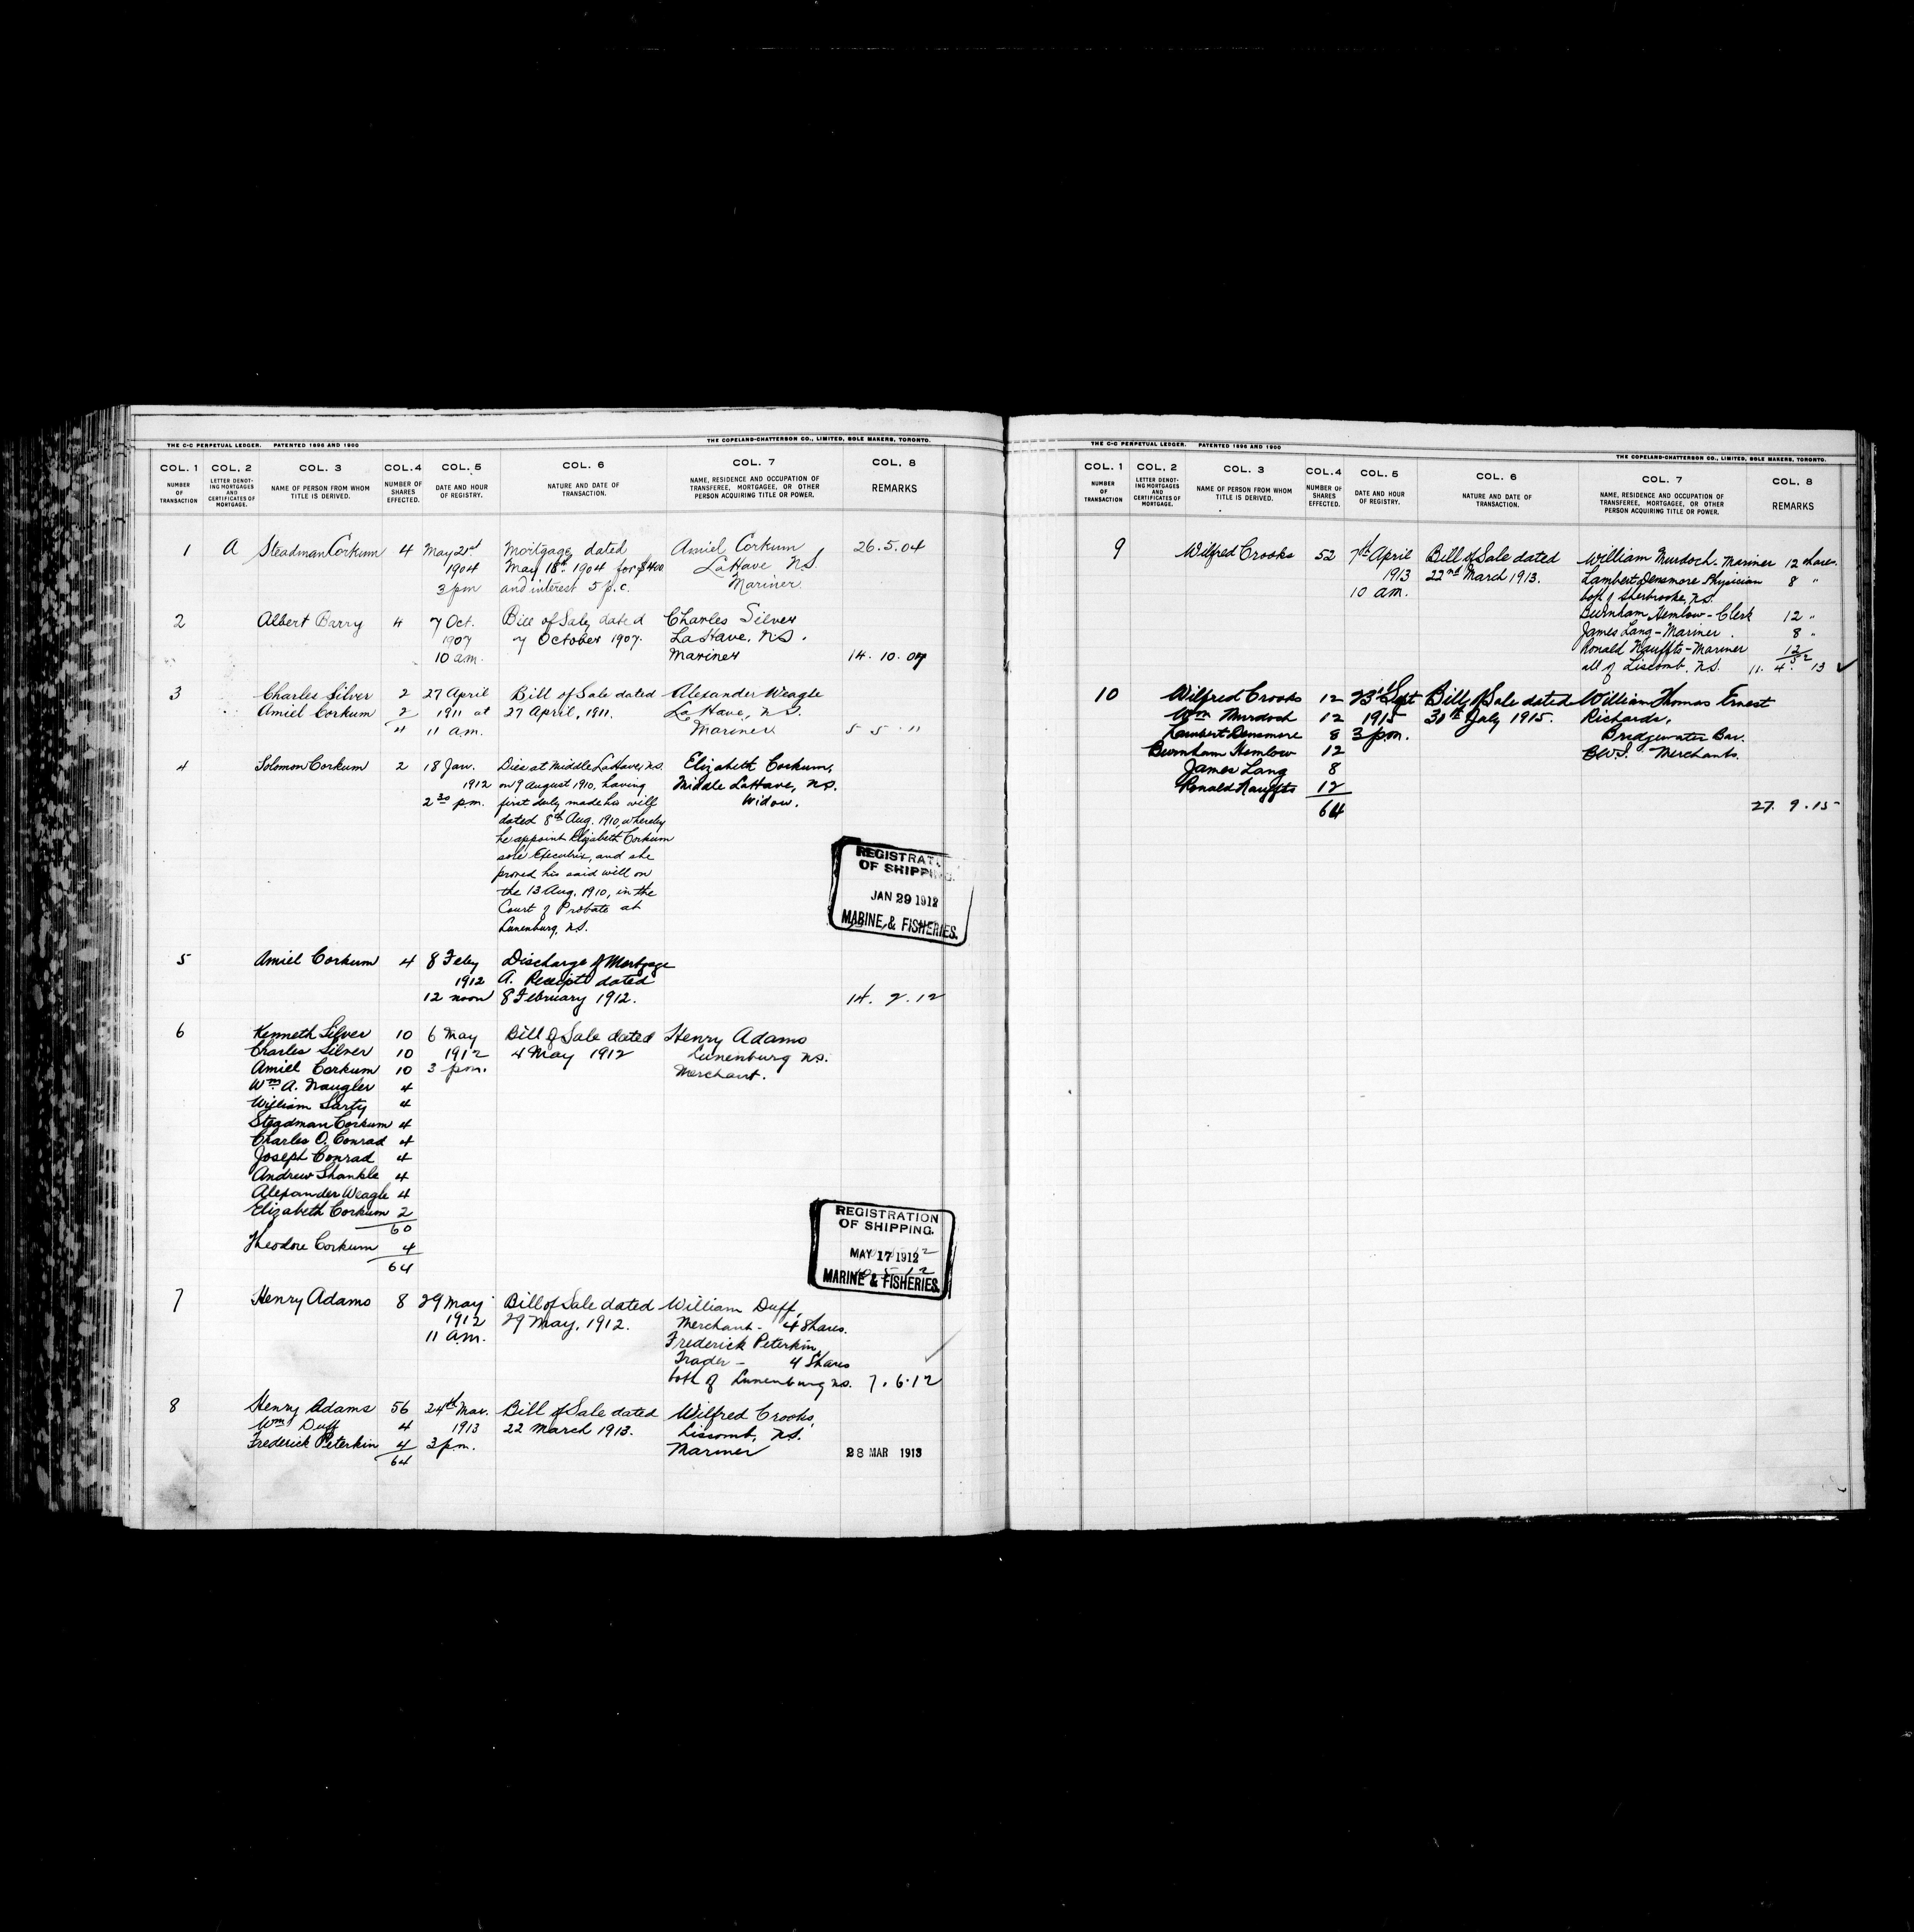 THE C-C PERPETUAL LEDGER. PATENTED 1896 AND 1900
THE COPELAND-CHATTERSON CO., LIMITED, SOLE MAKERS, TORONTO.
COL. 1 COL. 2 COL. 3 COL. 4 COL. 5 COL. 6 COL. 7 COL. 8
NUMBER OF TRANSACTION
LETTER DENOTING MORTGAGES AND CERTIFICATES OF MORTGAGE.
NAME OF PERSON FROM WHOM TITLE IS DERIVED.
NUMBER OF SHARES EFFECTED.
DATE AND HOUR OF REGISTRY.
NATURE AND DATE OF TRANSACTION.
NAME, RESIDENCE AND OCCUPATION OF TRANSFEREE, MORTGAGEE, OR OTHER PERSON ACQUIRING TITLE OR POWER.
REMARKS
1 A Steadman Corkum 4 May 21st Mortgage dated Amiel Corkum 26.5.04
1904 May 18th 1904 for $400 LaHave N.S.
3 pm and interest 5 p.c. Mariner
2 Albert Barry 4 7 Oct. Bill of Sale dated Charles Silver
1907 7 October 1907. LaHave, N.S.
10 a.m. Mariner 14.10.07
3 Charles Silver 2 27 April Bill of Sale dated Alexander Weagle
Amiel Corkum 2 1911 at 27 April, 1911. La Have, N.S.
4 11 a.m. Mariner 5 5 11
4 Solomon Corkum 2 18 Jan. Dies at Middle LaHave, N.S. Elizabeth Corkum,
1912 on 9 August 1910, having Middle LaHave, N.S.
2 30 p.m. first duly made his will Widow.
dated 8th Aug. 1910, whereby
he appoint Elizabeth Corkum
sole Executrix, and she
proved his said will on
the 13 Aug. 1910, in the
Court of Probate at
Lunenburg, N.S.
REGISTRAT
OF SHIPPING.
JAN 29 1912
MARINE & FISHERIES.
5 Amiel Corkum 4 8 Feby Discharge of Mortgage
1912 A. Receipt dated
12 noon 8 February 1912. 14. 2. 12
6 Kenneth Silver 10 6 May Bill of Sale dated Henry Adams
Charles Silver 10 1912 4 May 1912 Lunenburg N.S.
Amiel Corkum 10 3 p.m. Merchant.
Wm A. Naugler 4
William Sarty 4
Steadman Corkum 4
Charles O. Conrad 4
Joseph Conrad 4
Andrew Shankle 4
Alexander Weagle 4
Elizabeth Corkum 2
60
Theodore Corkum 4
64
REGISTRATION
OF SHIPPING.
MAY 17 1912
MARINE & FISHERIES.
7 Henry Adams 8 29 May Bill of Sale dated William Duff,
1912 29 May, 1912. Merchant - 4 Shares.
11 a.m. Frederick Peterkin,
Trader - 4 Shares
both of Lunenburg N.S. 7.6.12
8 Henry Adams 56 24th Mar. Bill of Sale dated Wilfred Crooks,
Wm Duff 4 1913 22 March 1913. Liscomb, N.S.
Frederick Peterkin 4 3 p.m. Mariner 28 MAR 1913
64
THE C-C PERPETUAL LEDGER. PATENTED 1896 AND 1900
THE COPELAND-CHATTERSON CO., LIMITED, SOLE MAKERS, TORONTO.
COL. 1 COL. 2 COL. 3 COL. 4 COL. 5 COL. 6 COL. 7 COL. 8
NUMBER OF TRANSACTION
LETTER DENOTING MORTGAGES AND CERTIFICATES OF MORTGAGE.
NAME OF PERSON FROM WHOM TITLE IS DERIVED.
NUMBER OF SHARES EFFECTED.
DATE AND HOUR OF REGISTRY.
NATURE AND DATE OF TRANSACTION.
NAME, RESIDENCE AND OCCUPATION OF TRANSFEREE, MORTGAGEE, OR OTHER PERSON ACQUIRING TITLE OR POWER.
REMARKS
9 Wilfred Crooks 52 7th April Bill of Sale dated William Murdoch. Mariner 12 shares.
1913 22nd March 1913. Lambert Densmore Physician 8 "
10 a.m. both of Sherbrooke, N.S.
Burnham Hemlow - Clerk 12 "
James Lang - Mariner. 8 "
Ronald Hauffts - Mariner 12
52
all of Liscomb. N.S. 11. 4. 13
10 Wilfred Crooks 12 23rd Sept Bill of Sale dated William Thomas Ernest
Wm Murdoch 12 1915 30th July 1915. Richards,
Lambert Densmore 8 3 p.m. Bridgewater Bar.
Burnham Hemlow 12 B.W.I. Merchants.
James Lang 8
Ronald Hauffts 12
64 27. 9. 15